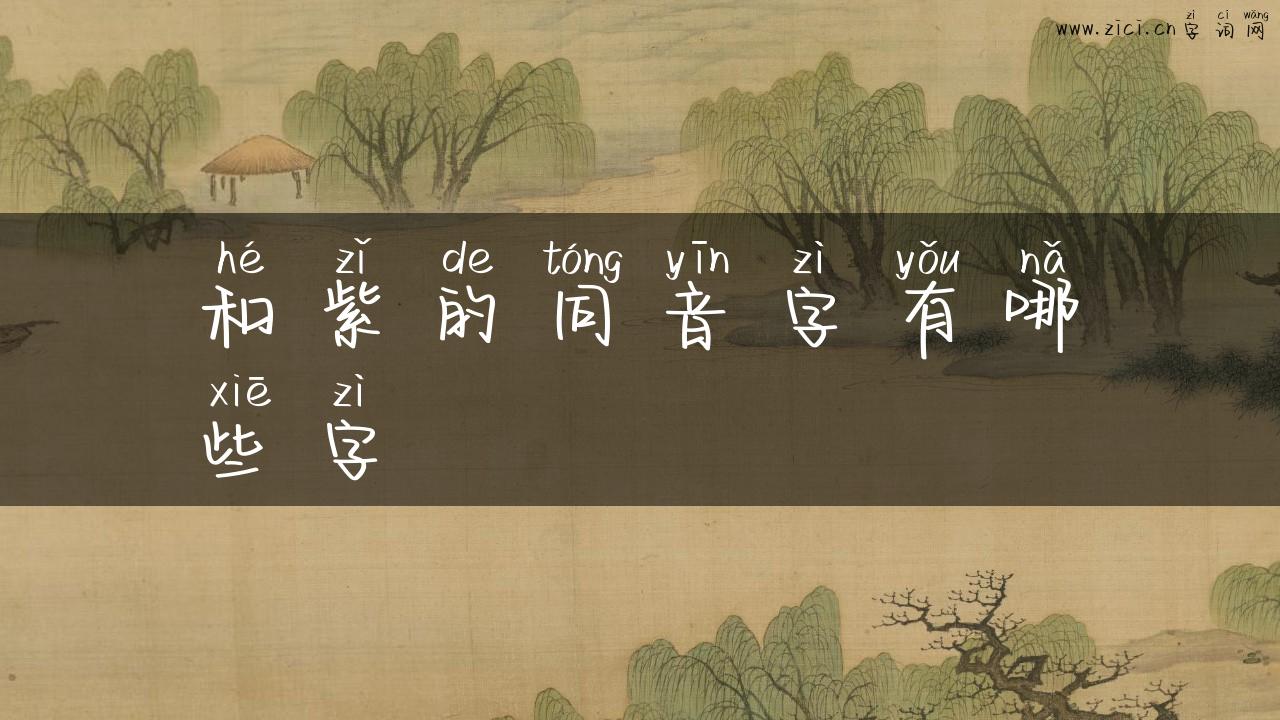 zì cí wǎng
www.zici.cn 字 词 网
hé zǐ de tóng yīn zì yǒu nǎ
和 紫 的 同 音 字 有 哪
xiē zì
些 字